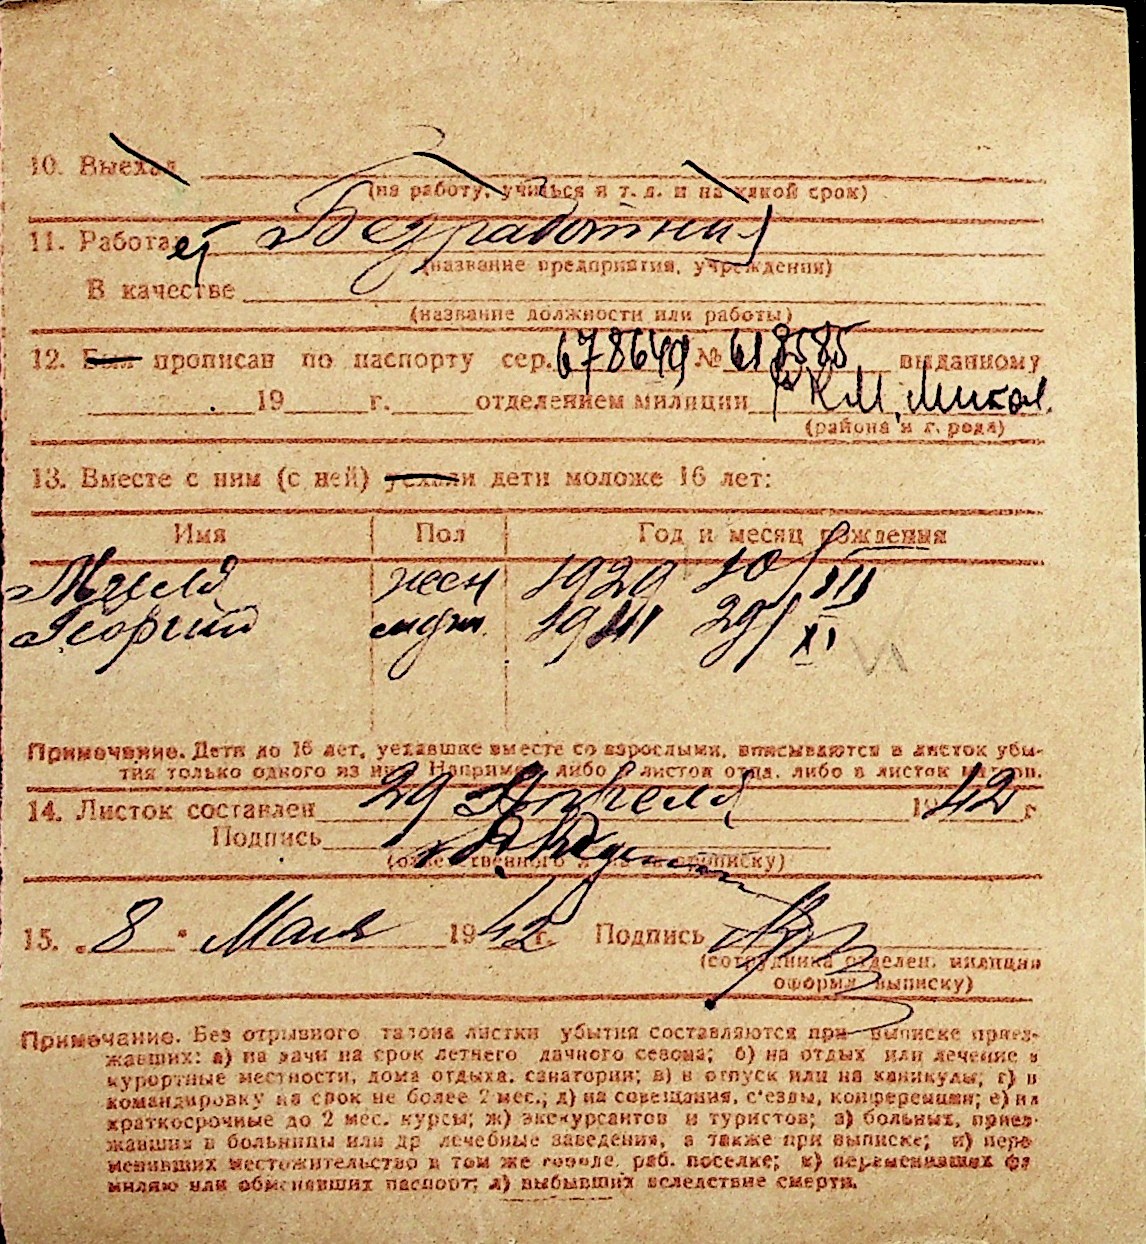 10. Выехал
(на работу, учиться и т. д. и на какой срок)
11. Работает Безработный
(название предприятия, учреждения)
В качестве
(название должности или работы)
12. Был прописан по паспорту сер. 678649 № 618585 выданному
19 г. отделением милиции РКМ, Никол.
(района и города)
13. Вместе с ним (с ней) уехали дети моложе 16 лет:
Имя Пол Год и месяц рождения
жен 1929 10/III
Георгий муж. 1941 29/XI
VI
Примечание. Дети до 16 лет, уехавшие вместе со взрослыми, вписываются в листок убы-
тия только одного из них. Например либо в листок отца, либо в листок матери.
14. Листок составлен 29 Апреля 1942 г
Подпись
(ответственного за выписку)
15. „8" Мая 1942 г. Подпись
(сотрудника отделен. милиции
оформл выписку)
Примечание. Без отрывного талона листки убытия составляются при выписке приез-
жавших: а) на дачи на срок летнего дачного сезона; б) на отдых или лечение в
курортные местности, дома отдыха, санатории; в) в отпуск или на каникулы; г) в
командировку на срок не более 2 мес.; д) на совещания, с'езды, конференции; е) на
краткосрочные до 2 мес. курсы; ж) экскурсантов и туристов; з) больных, приез-
жавших в больницы или др лечебные заведения, а также при выписке; и) пере-
менивших местожительство в том же городе, раб. поселке; к) переменивших фа
милию или обменявших паспорт; л) выбывших вследствие смерти.